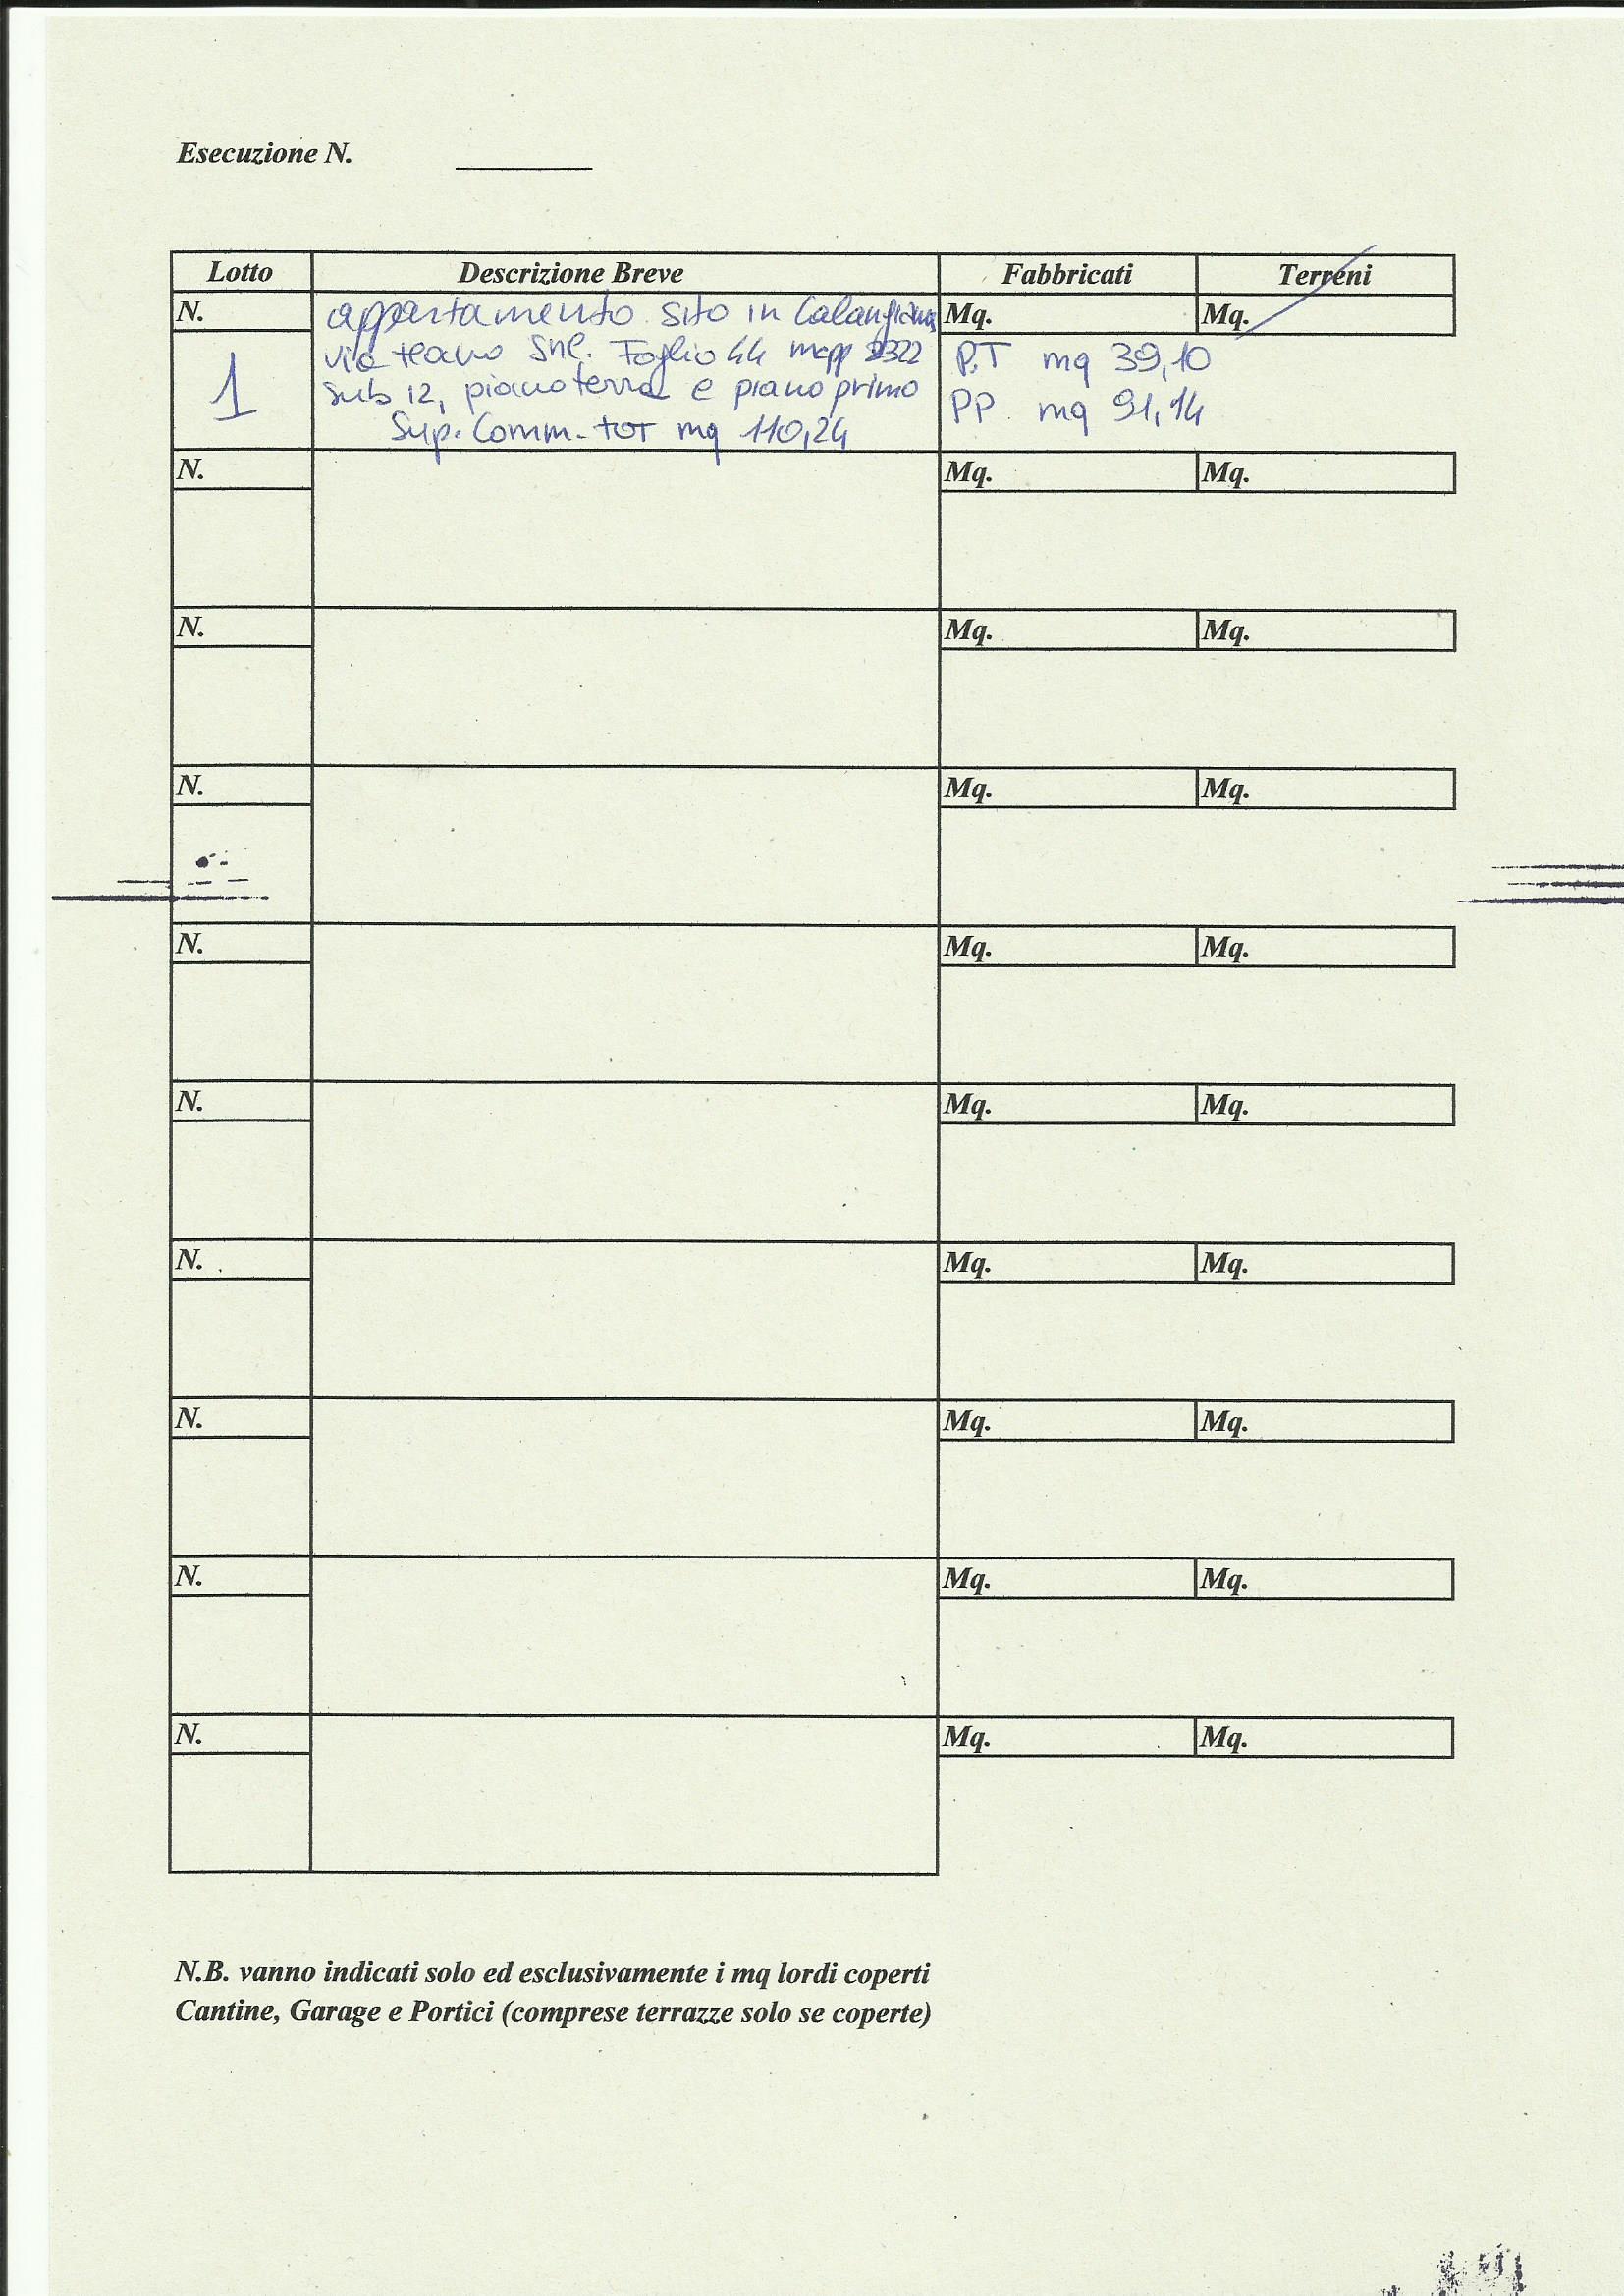 Esecuzione N.
Lotto Descrizione Breve Fabbricati Terreni
N. appartamento sito in Calangianus Mq. Mq.
1 via teano snc. Foglio 44 mapp 2322 P.T mq 39,10
sub 12, piano terra e piano primo PP. mq 91,14
Sup. Comm. TOT mq 110,24
N. Mq. Mq.
N. Mq. Mq.
N. Mq. Mq.
N. Mq. Mq.
N. Mq. Mq.
N. Mq. Mq.
N. Mq. Mq.
N. Mq. Mq.
N. Mq. Mq.
N.B. vanno indicati solo ed esclusivamente i mq lordi coperti
Cantine, Garage e Portici (comprese terrazze solo se coperte)